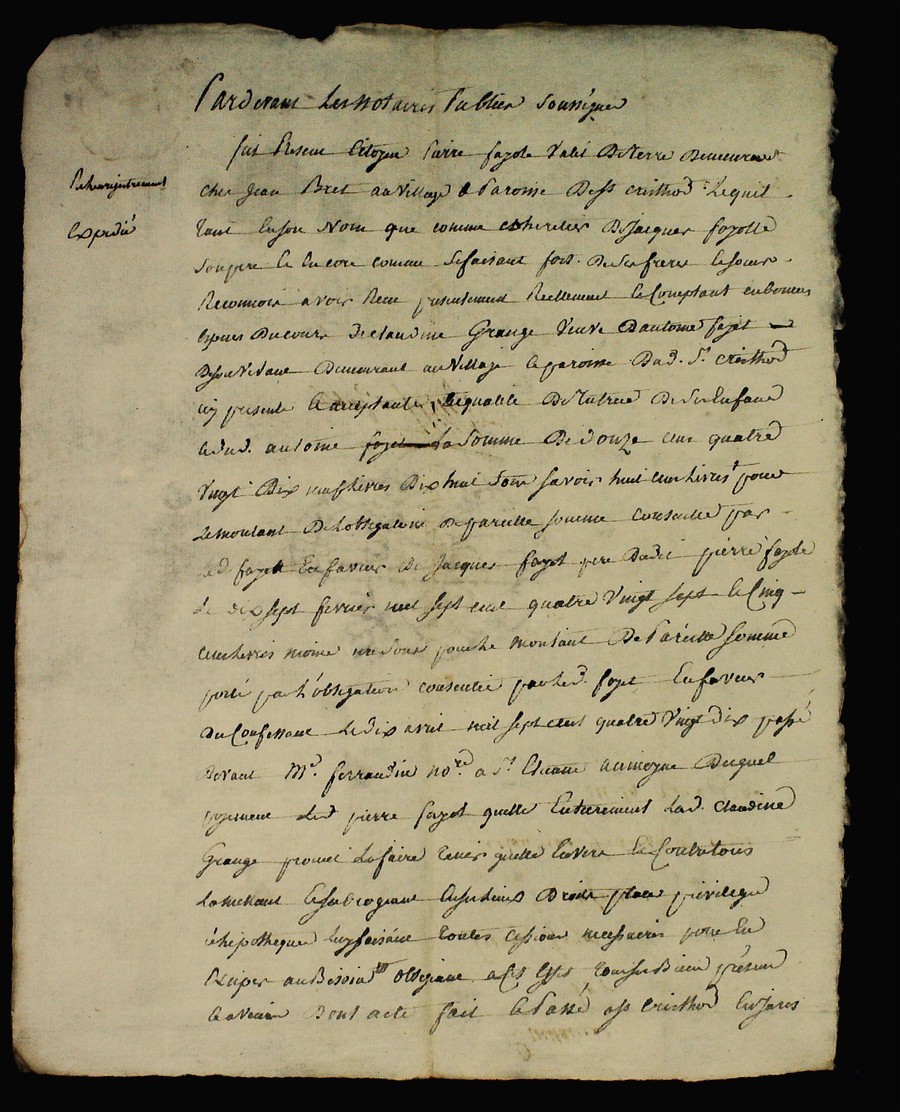 Pardevant Les Nottaires Publics Soussignés
fut Présent Citoyen Pierre fayole Valet De Terre Demeurant
Pr Lenregistrement
chez Jean Bret au village & Paroisse De St cristhod Lequel
Expedié
tant En son Nom que comme coheritier De Jacques fayolle
Son pere et Encore comme Se faisant fort De Ses freres et soeurs
Reconnoit avoir Recu presentement Reellement et Comptant en bonnes
Especes Du cours De claudine Grange Veuve D'antoine fayot
De Son Vivant Demeurant au village et paroisse Dud. St cristhod
icy presente et acceptante En qualité De Tutrice De Ses Enfans
et dud. antoine fayot La Somme De Douze cent quatre
Vingt Dix neuf livres Dix huit Sous Savoir huit cent livres pour
Le montant De Lobligation De pareille Somme consentie par
led. fayot En faveur De Jacques fayot pere Dudi pierre fayole
Le dix sept fevrier mil sept cent quatre Vingt sept et Cinq
cent livres moins un Sous pour Le montant De Pareille Somme
porté par L'obligation consentie par Led. fayot En faveur
Du Confessant Le dix avril mil sept cent quatre Vingt dix passé
Devant Me. ferrandin nore. a St Etienne au moyen Duquel
payement Led. pierre fayot quitte Entierement La d. claudine
Grange promet La faire Tenir quitte Envers Et Contre tous
La mettant et Subrogeant En Ses Lieux Droits place privilege
et hipotheque Luy faisant toutes cession necessaires pour En
Exciper au Besoin obligeant a Ces Effets tous ses Biens présent
et avenir Dont acte fait et Passé a St cristhod En Jarés